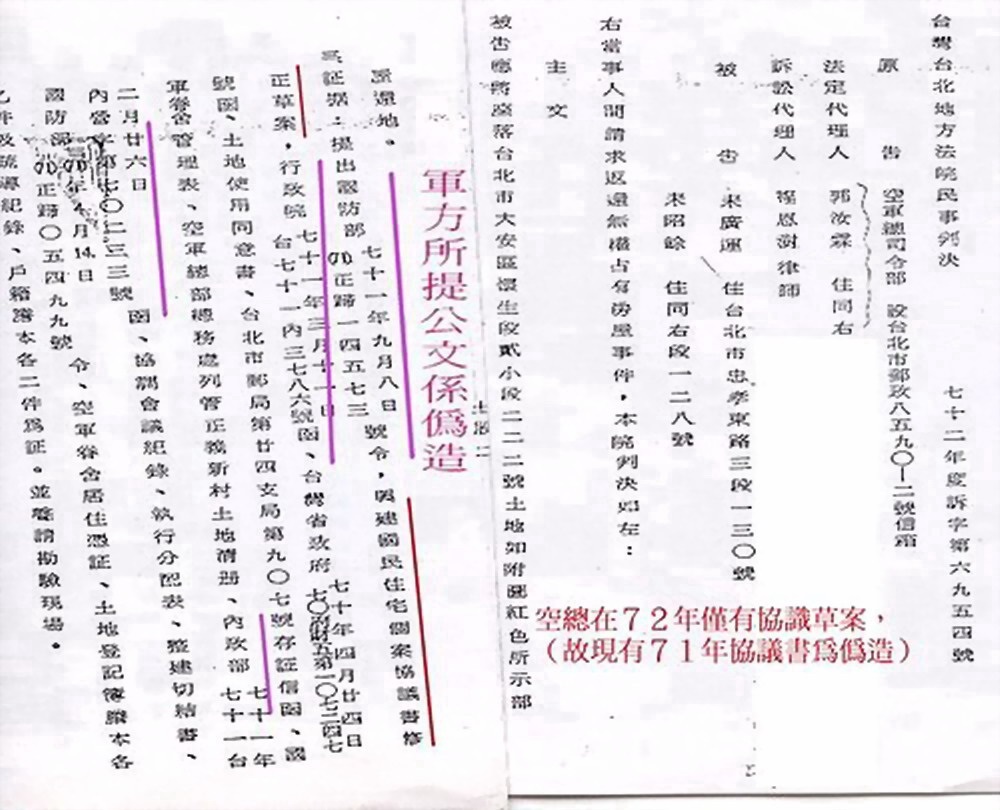 台灣台北地方法院民事判決
七十二年度訴字第六九五四號
原告 空軍總司令部 設台北市郵政八五九〇—二號信箱
法定代理人 郭汝霖 住同右
訴訟代理人 程恩澍律師
被告 朱廣運 住台北市忠孝東路三段一三〇號
朱昭餘 住同右段一二八號
右當事人間請求返還無權占有房屋事件，本院判決如左：
主文
被告應將座落台北市大安區懷生段貳小段二二二號土地如附圖紅色所示部
空總在７２年僅有協議草案，
（故現有７１年協議書爲僞造）
軍方所提公文係僞造
原還地。
証據：提出國防部 七十一年九月八日 正歸一四五七三 號令，興建國民住宅個案協議書修
正草案，行政院 七十一年三月十一日 台七十一內三七八六號函、台灣省政府 七十年四月廿四日
號函、土地使用同意書、台北市郵局第廿四支局第九〇七號存証信函、國
軍眷舍管理表、空軍總部總務處列管正義新村土地清册、內政部 七十一年
二月廿六日 七十一台
內營字第七〇二三三號 函、協調會議紀錄、執行分配表、整建切結書、
國防部 年4月14日 正歸〇五四九九號 令、空軍眷舍居住憑証、土地登記簿謄本各
乙件及疏導紀錄、戶籍謄本各二件爲証。並聲請勘驗現場。